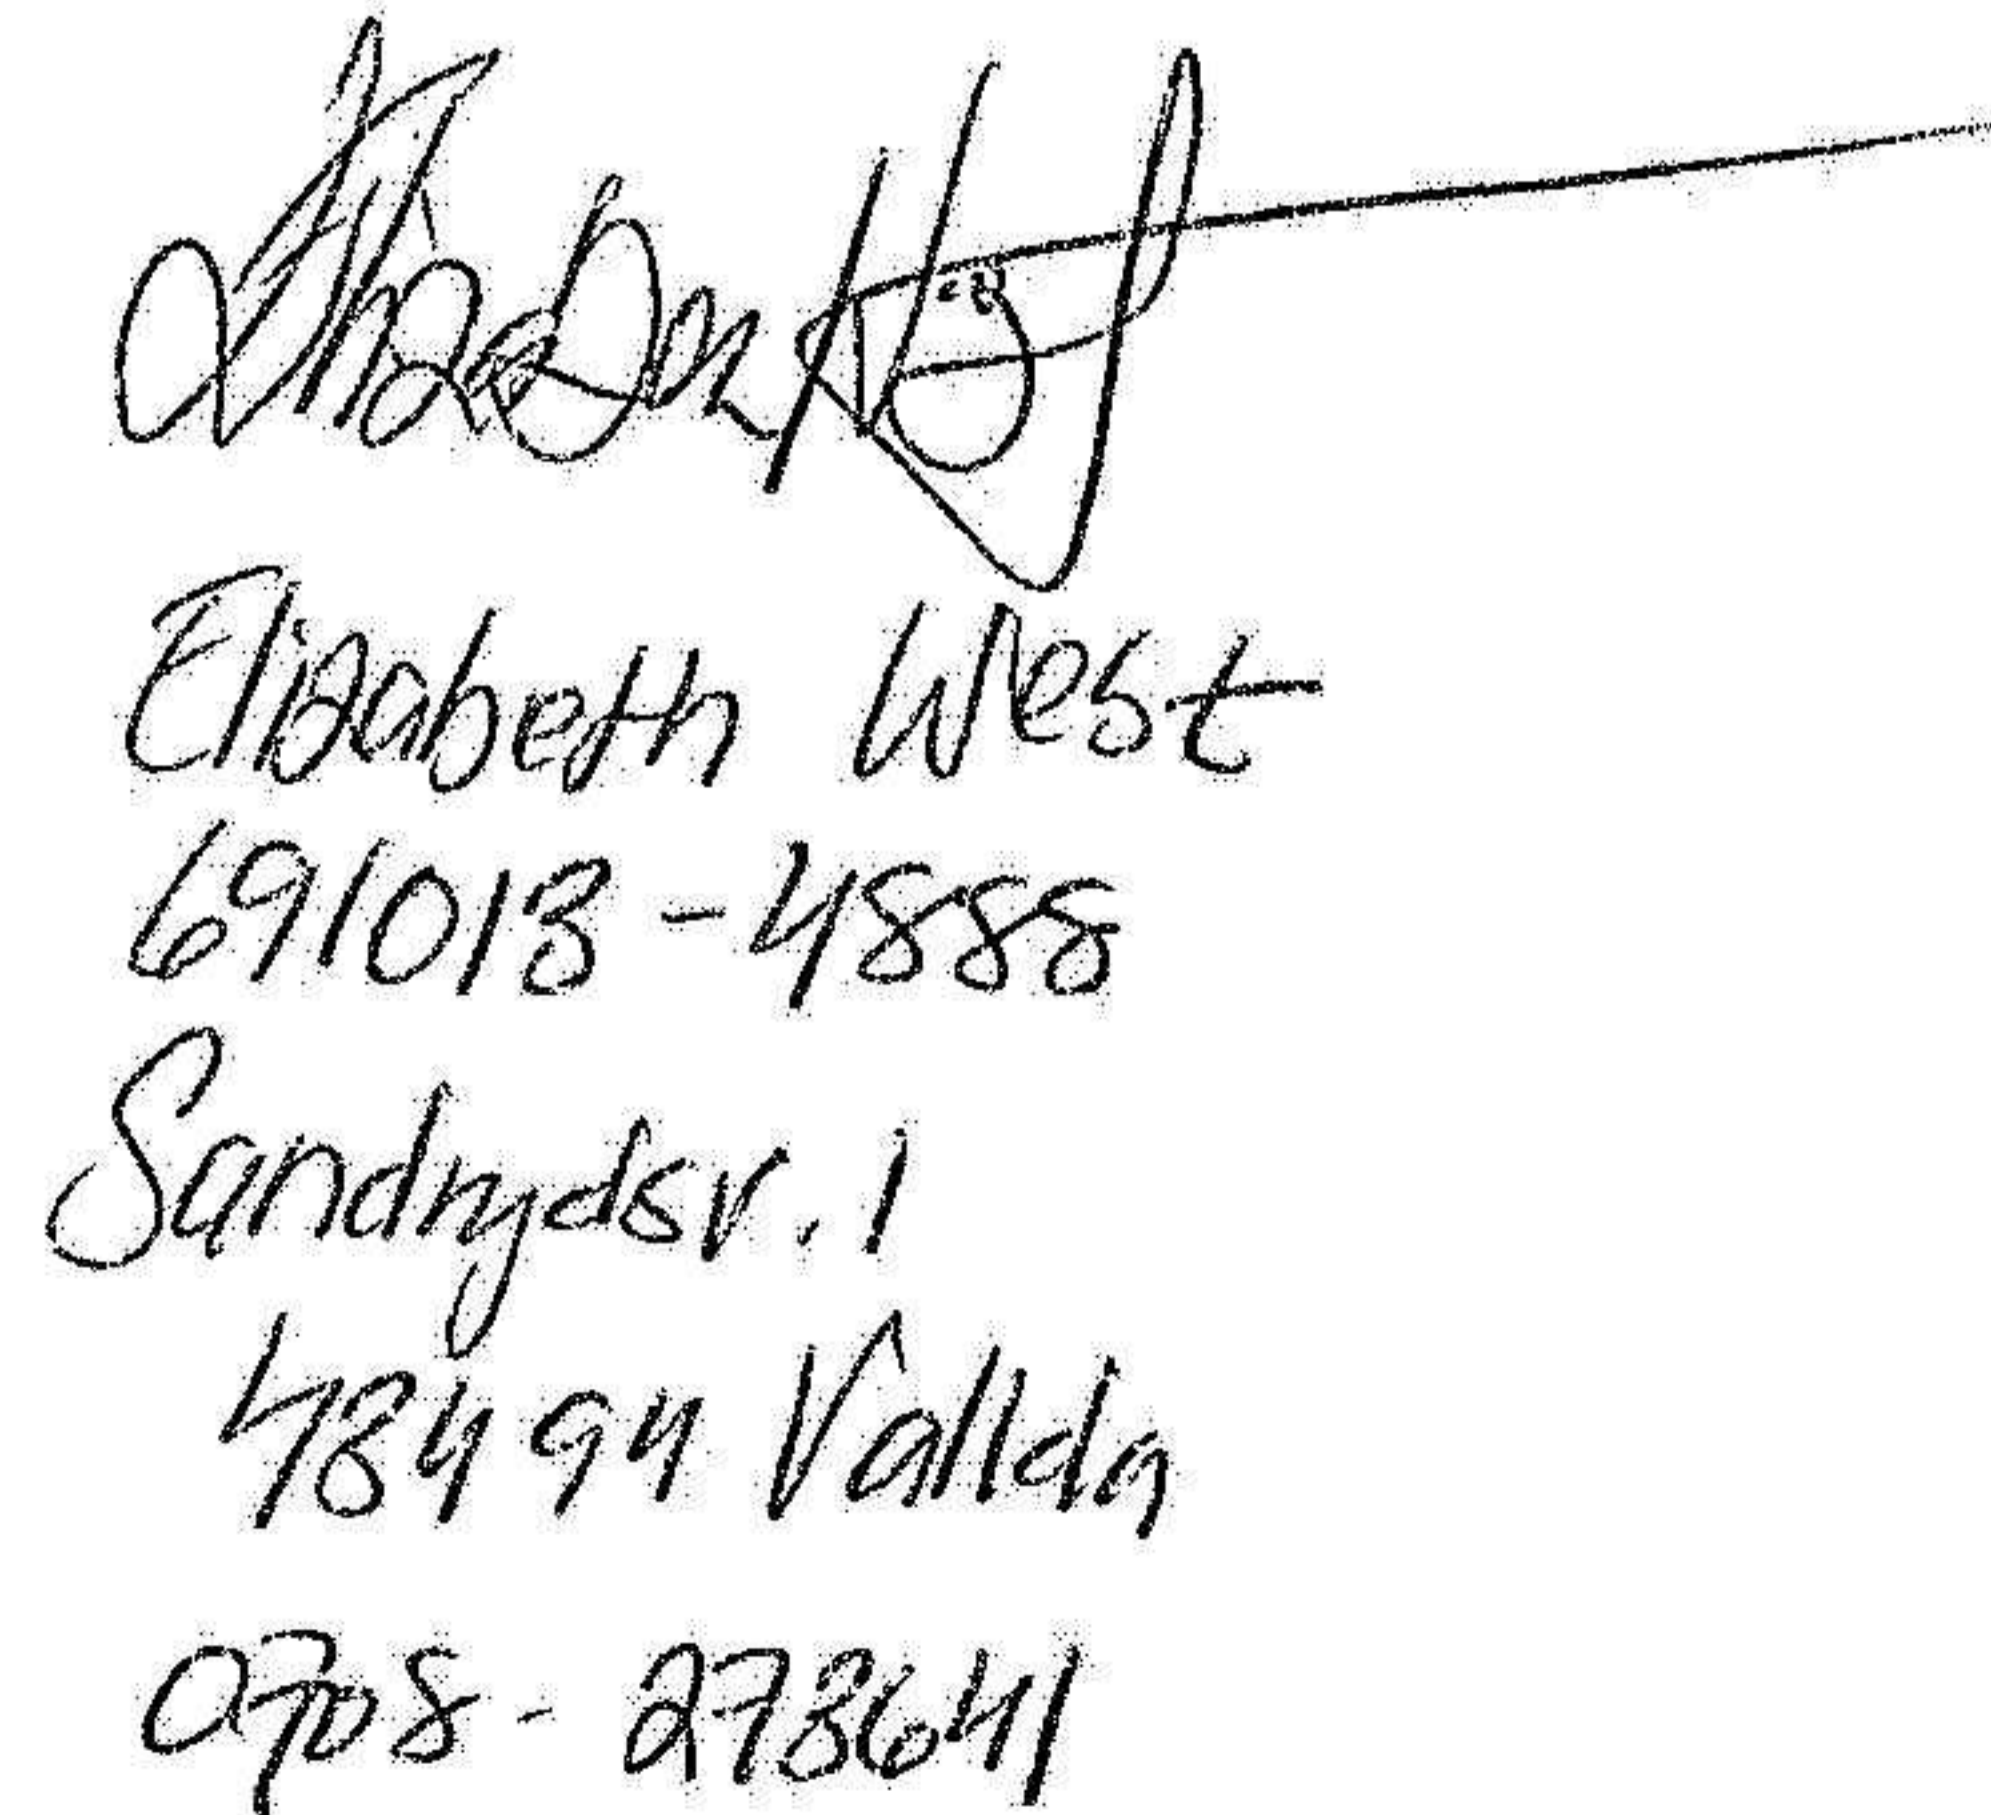 Elisabeth West
691013-4888
Sandrydsv. 1
434 94 Vallda
0708-273641